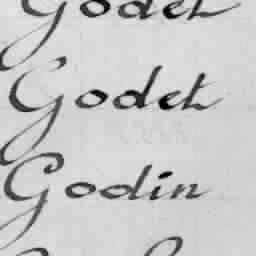 Godet
Godet
Godin